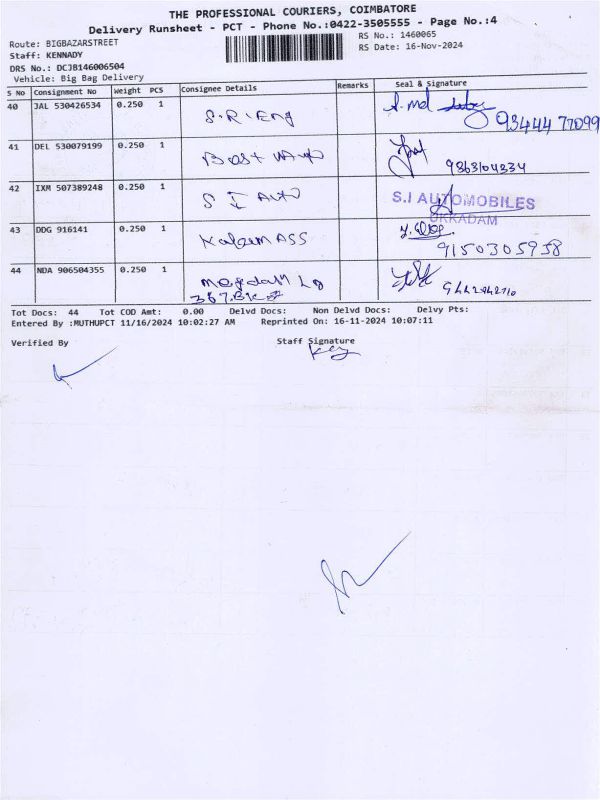 THE PROFESSIONAL COURIERS, COIMBATORE
Delivery Runsheet - PCT - Phone No.:0422-3505555 - Page No.:4
Route: BIGBAZARSTREET
RS No.: 1460065
Staff: KENNADY
RS Date: 16-Nov-2024
DRS No.: DCJB146006504
Vehicle: Big Bag Delivery
S No Consignment No Weight PCS Consignee Details Remarks Seal & Signature
40 JAL 530426534 0.250 1 S.R.Eng
93444 77099
41 DEL 530079199 0.250 1 Best Auto
9863104334
42 IXM 507389248 0.250 1 S I Auto
S.I AUTOMOBILES
UKKADAM
43 DDG 916141 0.250 1 Kalam ASS
9150305938
44 NDA 906504355 0.250 1
Tot Docs: 44 Tot COD Amt: 0.00 Delvd Docs: Non Delvd Docs: Delvy Pts:
Entered By :MUTHUPCT 11/16/2024 10:02:27 AM Reprinted On: 16-11-2024 10:07:11
Verified By Staff Signature